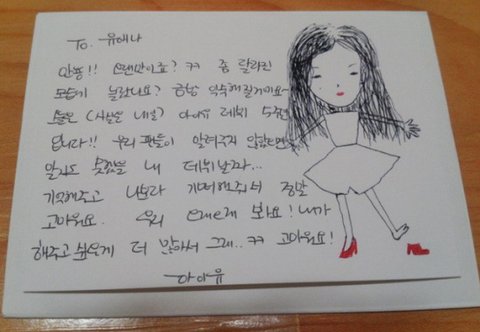 To. 유애나
안뇽!! 오랜만이죠? ㅋㅋ 좀 달라진
모습에 놀랐나요? 금방 익숙해질거예요~
오늘은 (사실은 내일) 아이유 데뷔 5주년
입니다!! 우리 팬들이 알려주지 않았다면
알지도 못했을 내 데뷔날짜...
기억해주고 나보다 기뻐해줘서 정말
고마워요. 우리 오래오래 봐요! 내가
해주고 싶은게 더 많아서 그래.. ㅋㅋ 고마워요!
-아이유